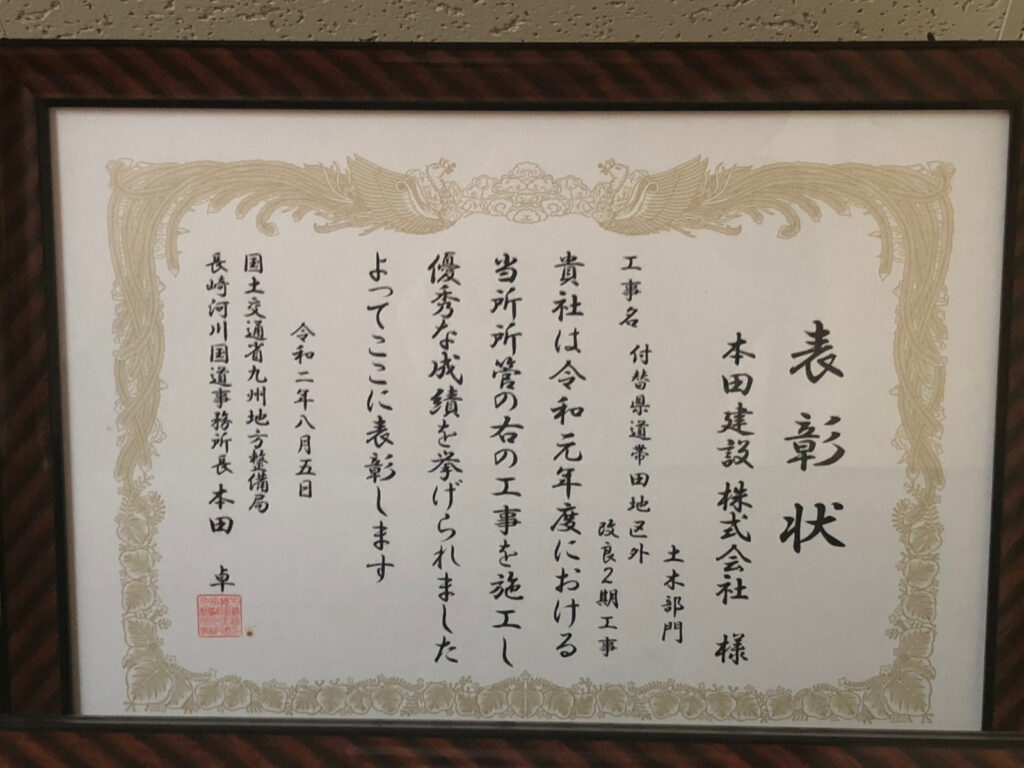 表彰状
本田建設 株式会社 様
土木部門
工事名 付替県道帯田地区外
改良2期工事
貴社は令和元年度における
当所所管の右の工事を施工し
優秀な成績を挙げられました
よってここに表彰します
令和二年八月五日
国土交通省九州地方整備局
長崎河川国道事務所長 本田 卓